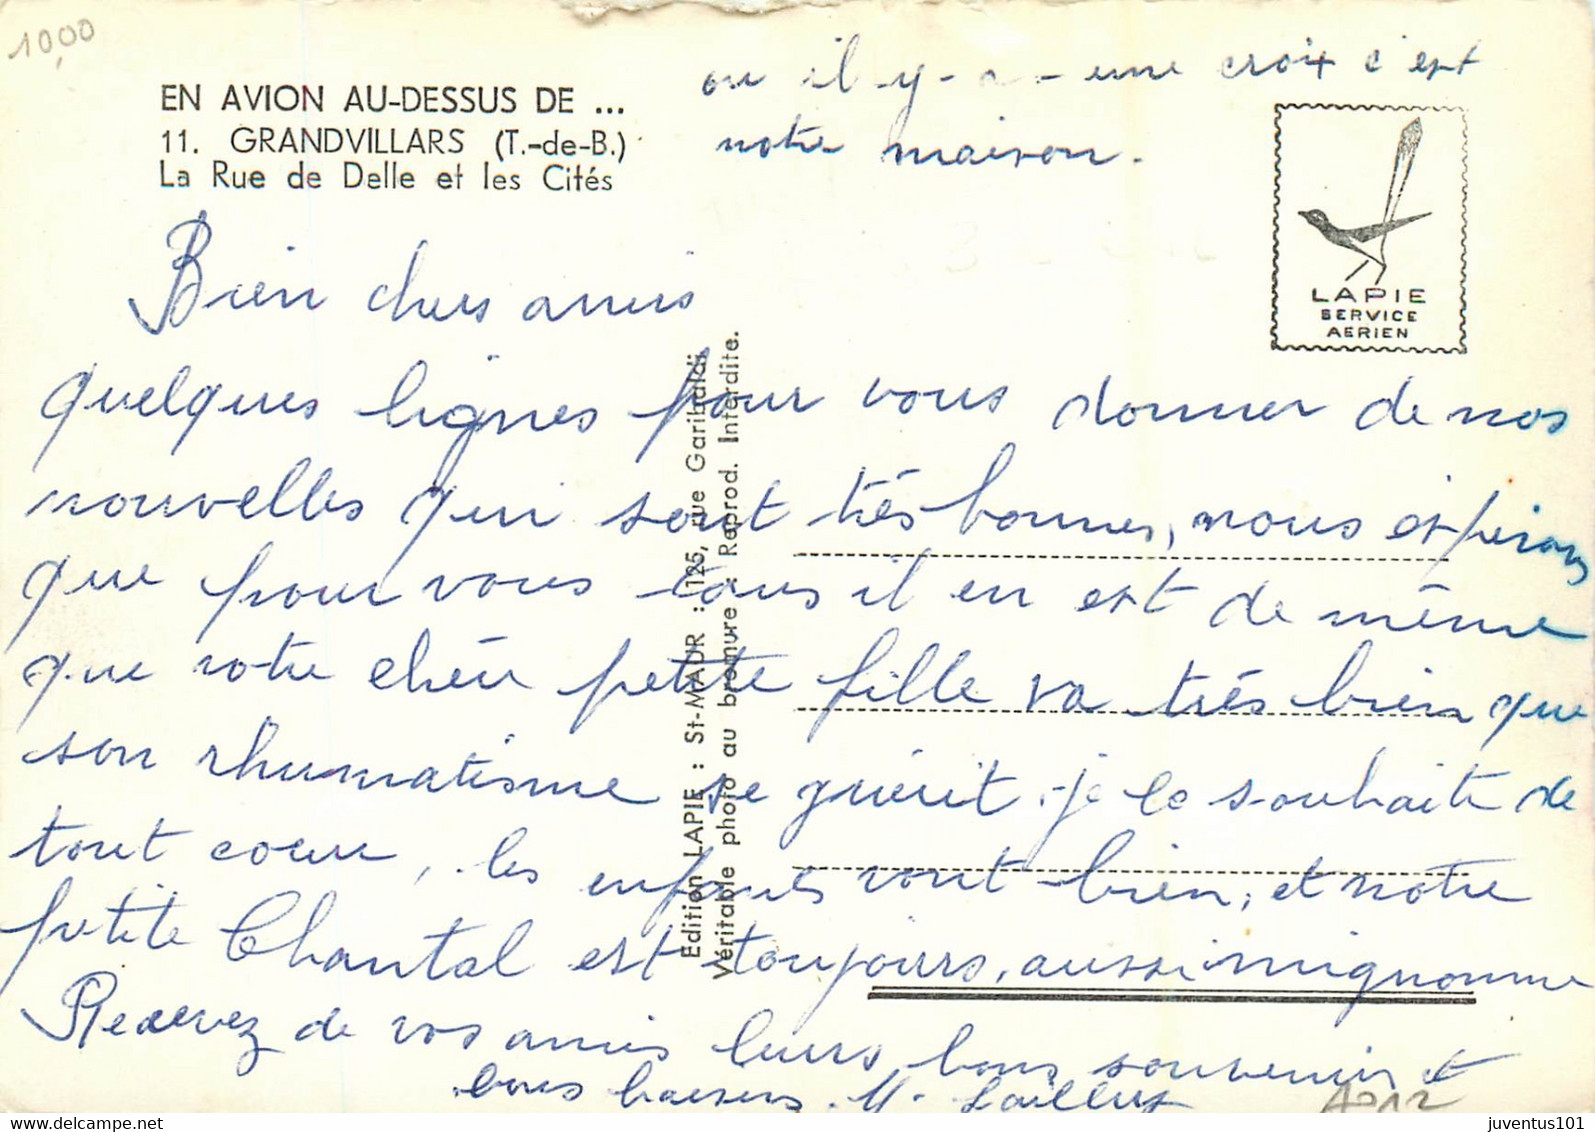 10,00
ou il y-a-une croix c'est
notre maison.
EN AVION AU-DESSUS DE ...
11. GRANDVILLARS (T.-de-B.)
La Rue de Delle et les Cités
LAPIE
SERVICE
AERIEN
Bien chers amis
quelques lignes pour vous donner de nos
nouvelles qui sont trés bonnes, nous espérons
que pour vous tous il en est de même
que votre chére petite fille va trés bien que
son rhumatisme se guérit. je le souhaite de
tout coeur, les enfants vont bien, et notre
petite Chantal est toujours, aussi mignonne
Recevez de vos amis leurs bons souvenirs et
bons baisers. M.
Edition LAPIE : St-MAUR : 125, rue Garibaldi.
Véritable photo au bromure - Reprod. Interdite.
A212
juventus101